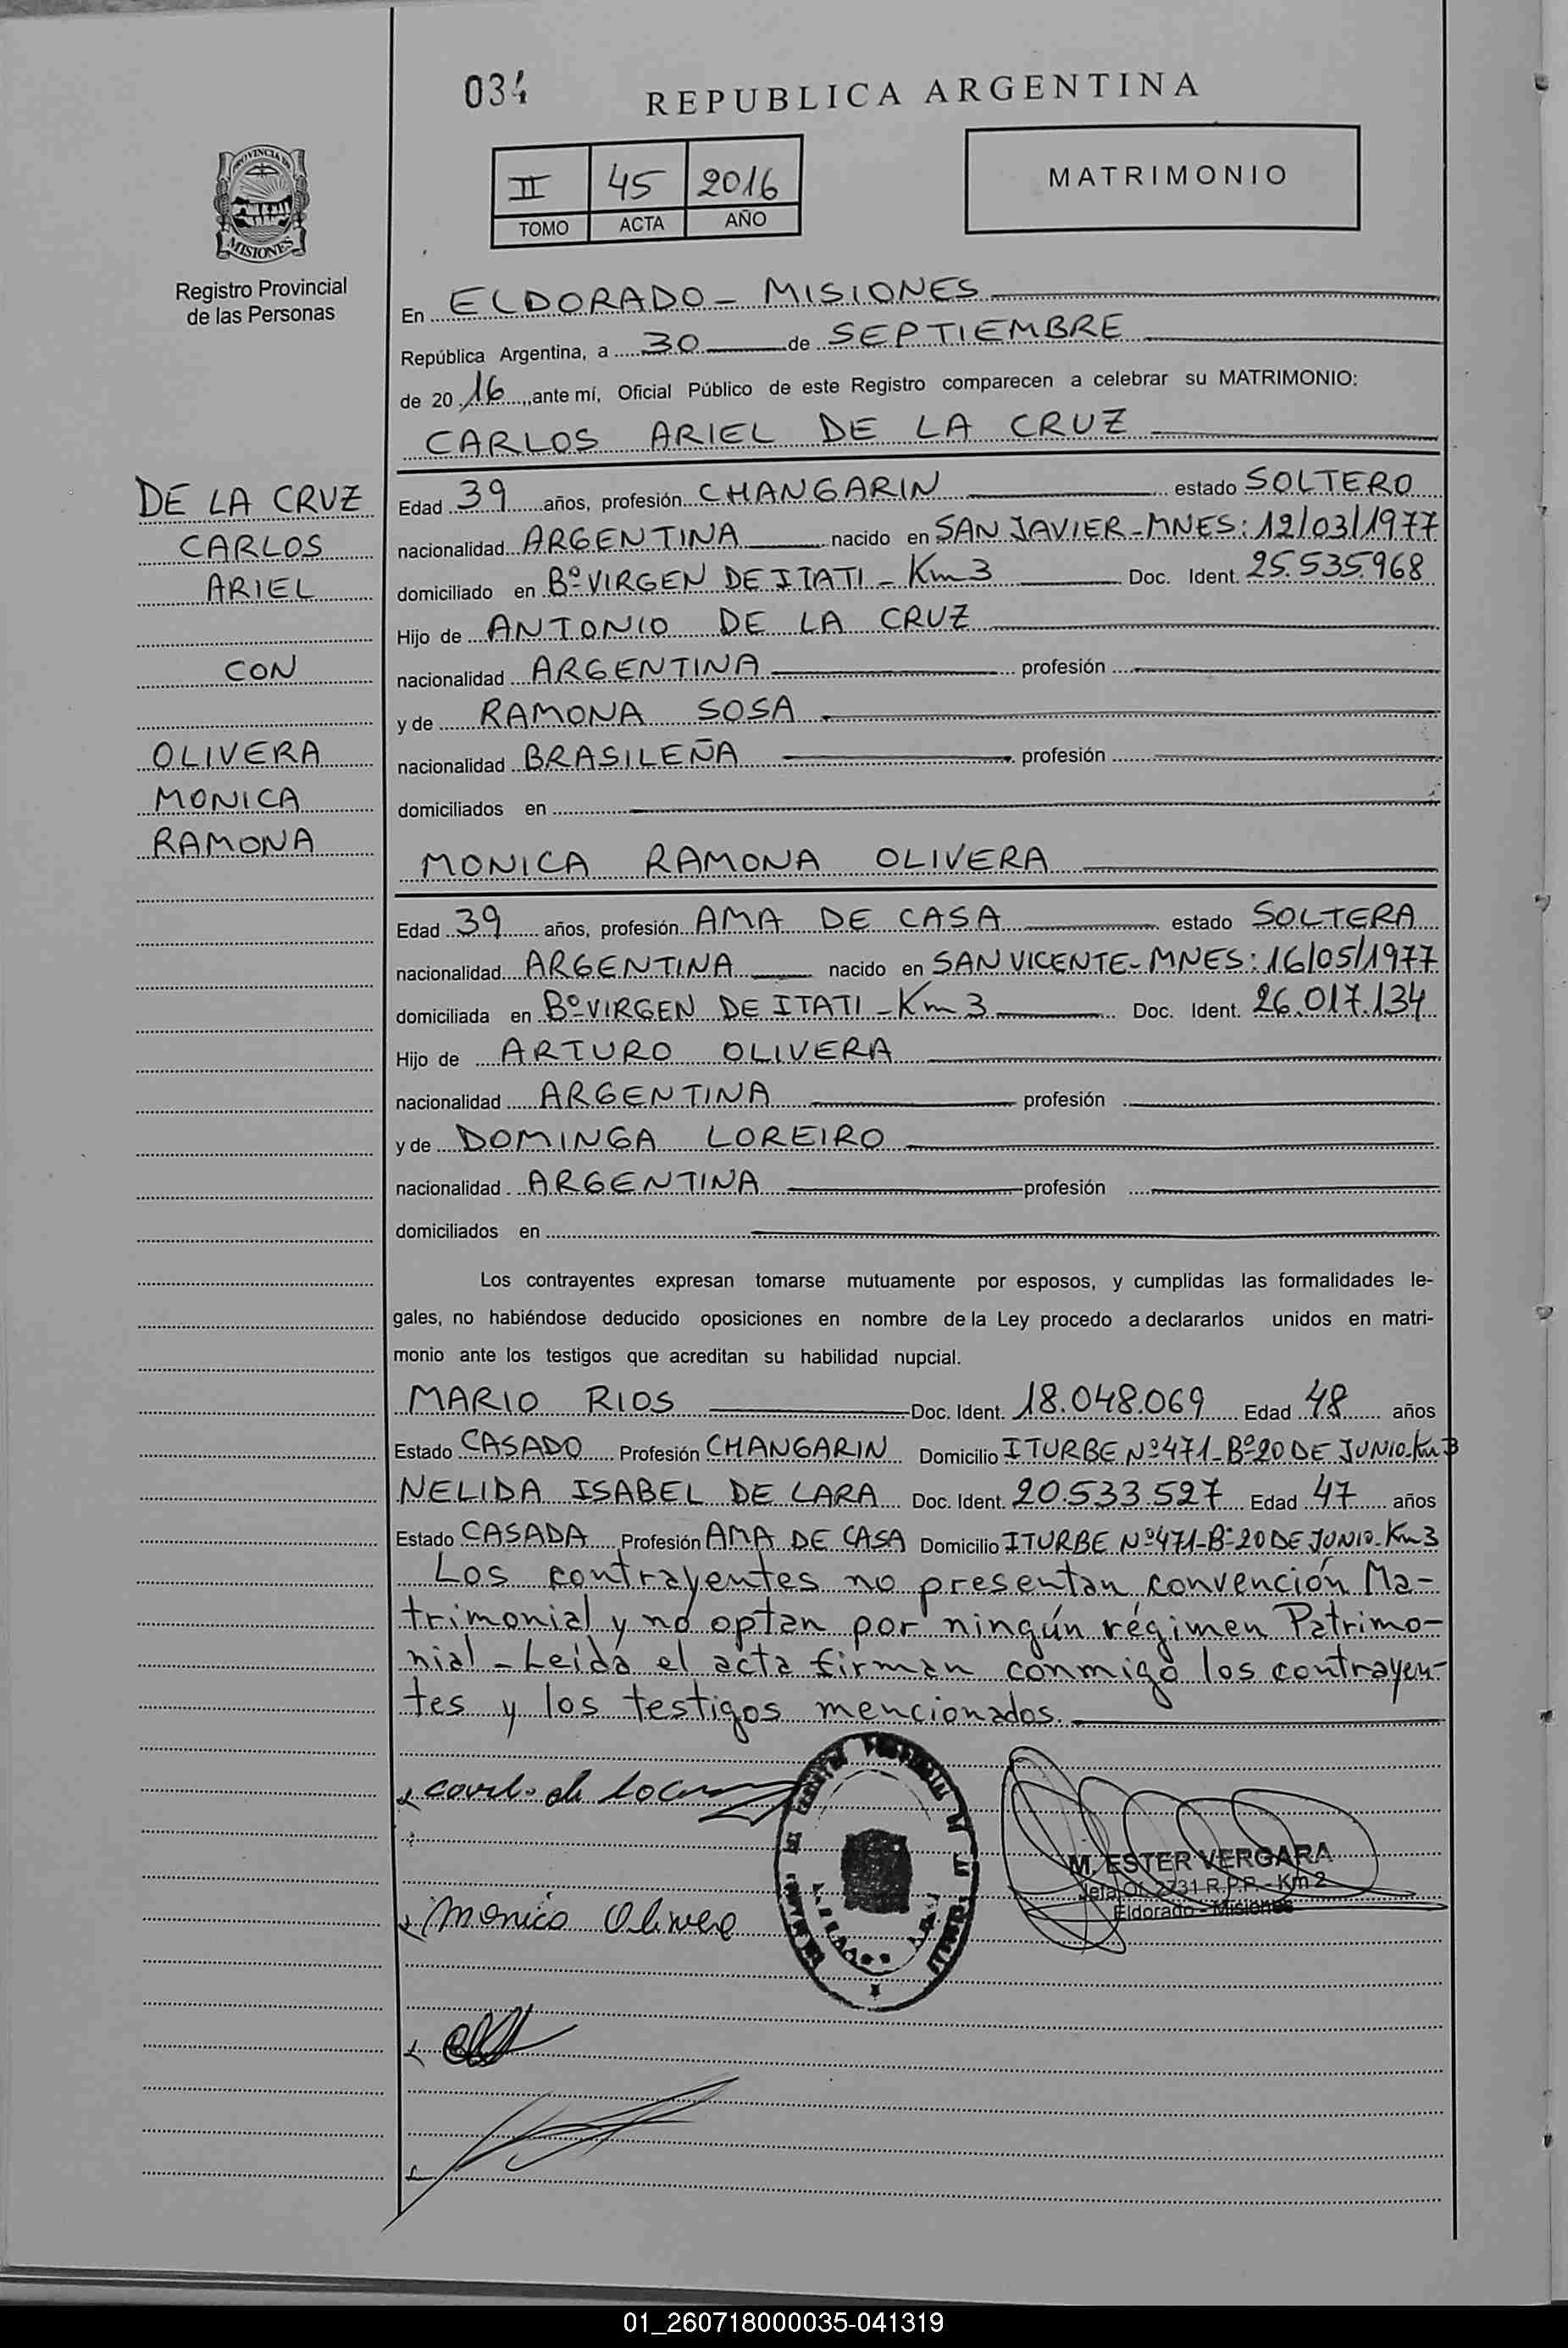 034
REPUBLICA ARGENTINA
II 45 2016
TOMO ACTA AÑO
MATRIMONIO
PROVINCIA DE
MISIONES
Registro Provincial
de las Personas
En ELDORADO - MISIONES
República Argentina, a 30 de SEPTIEMBRE
de 20 16, ante mí, Oficial Público de este Registro comparecen a celebrar su MATRIMONIO:
CARLOS ARIEL DE LA CRUZ
DE LA CRUZ
CARLOS
ARIEL
CON
OLIVERA
MONICA
RAMONA
Edad 39 años, profesión CHANGARIN estado SOLTERO
nacionalidad ARGENTINA nacido en SAN JAVIER - MNES: 12/03/1977
domiciliado en Bº VIRGEN DE ITATI - Km 3 Doc. Ident. 25.535.968
Hijo de ANTONIO DE LA CRUZ
nacionalidad ARGENTINA profesión
y de RAMONA SOSA
nacionalidad BRASILEÑA profesión
domiciliados en
MONICA RAMONA OLIVERA
Edad 39 años, profesión AMA DE CASA estado SOLTERA
nacionalidad ARGENTINA nacido en SAN VICENTE - MNES: 16/05/1977
domiciliada en Bº VIRGEN DE ITATI - Km 3 Doc. Ident. 26.017.134
Hijo de ARTURO OLIVERA
nacionalidad ARGENTINA profesión
y de DOMINGA LOREIRO
nacionalidad ARGENTINA profesión
domiciliados en
Los contrayentes expresan tomarse mutuamente por esposos, y cumplidas las formalidades le-
gales, no habiéndose deducido oposiciones en nombre de la Ley procedo a declararlos unidos en matri-
monio ante los testigos que acreditan su habilidad nupcial.
MARIO RIOS Doc. Ident. 18.048.069 Edad 48 años
Estado CASADO Profesión CHANGARIN Domicilio ITURBE Nº 471 - Bº 20 DE JUNIO - Km 3
NELIDA ISABEL DE LARA Doc. Ident. 20.533.527 Edad 47 años
Estado CASADA Profesión AMA DE CASA Domicilio ITURBE Nº 471 - Bº 20 DE JUNIO - Km 3
Los contrayentes no presentan convención Ma-
trimonial y no optan por ningún régimen Patrimo-
nial - Leída el acta firman conmigo los contrayen-
tes y los testigos mencionados.
M. ESTER VERGARA
Jefa Of. 2731 R.P.P. - Km 2
Eldorado - Misiones
Monica Olivera
01_260718000035-041319